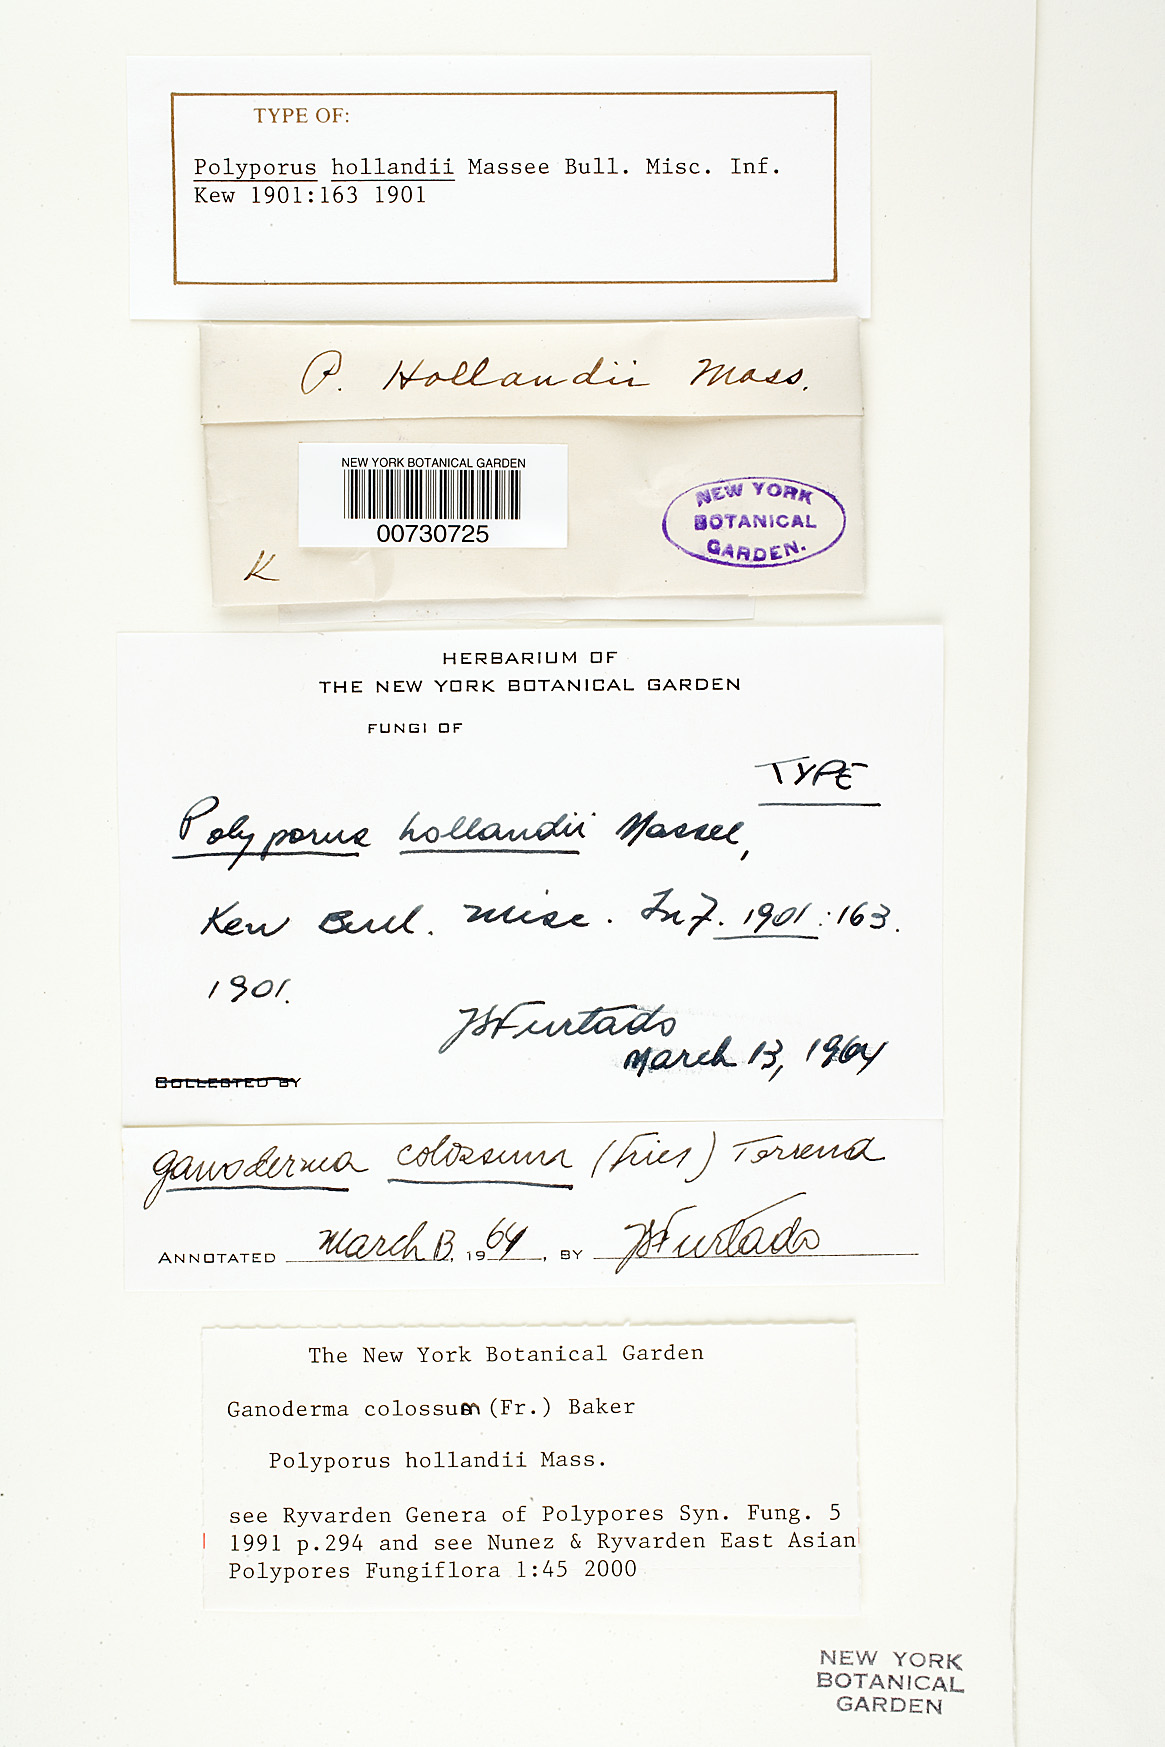 TYPE OF:
Polyporus hollandii Massee Bull. Misc. Inf.
Kew 1901:163 1901
P. Hollandii Mass.
NEW YORK BOTANICAL GARDEN
00730725
NEW YORK
BOTANICAL
GARDEN.
K
HERBARIUM OF
THE NEW YORK BOTANICAL GARDEN
FUNGI OF
TYPE
Polyporus hollandii Massee,
Kew Bull. Misc. Inf. 1901:163.
1901.
JSFurtado
March 13, 1964
COLLECTED BY
Ganoderma colossum (Fries) Torrend
ANNOTATED March 13, 1964, BY JSFurtado
The New York Botanical Garden
Ganoderma colossum (Fr.) Baker
Polyporus hollandii Mass.
see Ryvarden Genera of Polypores Syn. Fung. 5
1991 p.294 and see Nunez & Ryvarden East Asian
Polypores Fungiflora 1:45 2000
NEW YORK
BOTANICAL
GARDEN